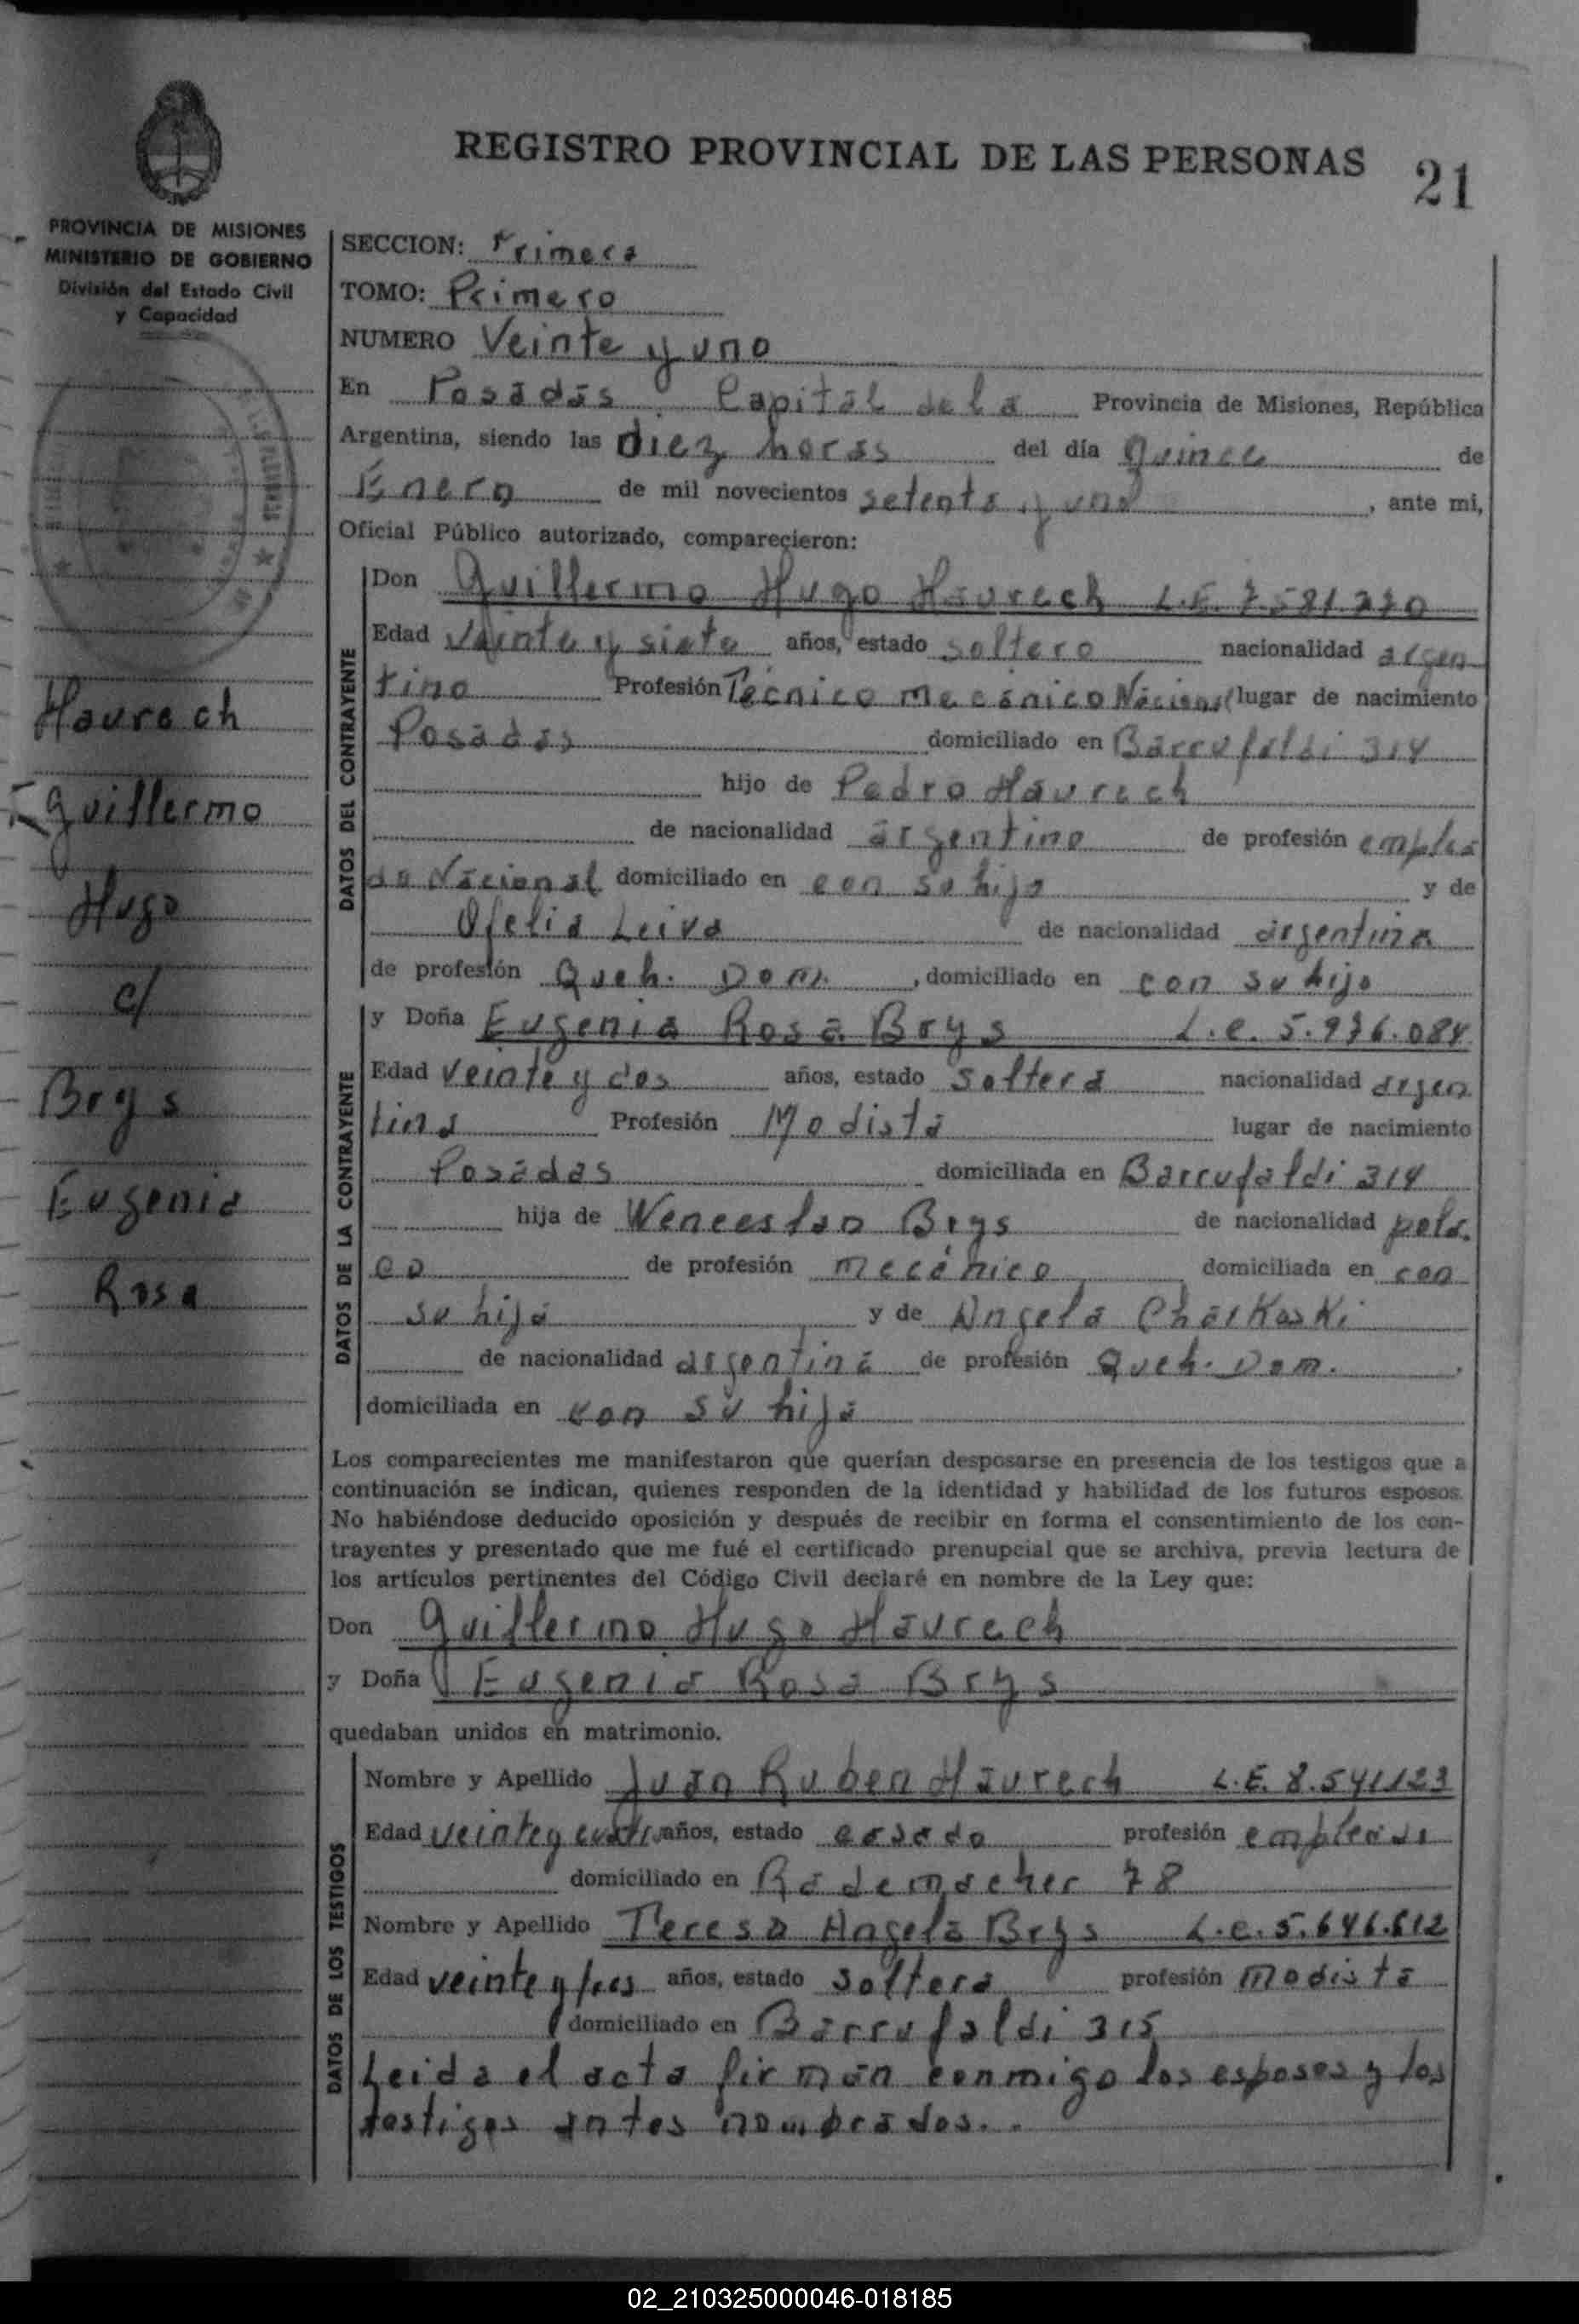 REGISTRO PROVINCIAL DE LAS PERSONAS 21
PROVINCIA DE MISIONES
MINISTERIO DE GOBIERNO
División del Estado Civil
y Capacidad
Haurech
Guillermo
Hugo
c/
Brys
Eugenia
Rosa
SECCION: Primera
TOMO: Primero
NUMERO Veinte y uno
En Posadas Capital de la Provincia de Misiones, República
Argentina, siendo las diez horas del día quince de
Enero de mil novecientos setenta y uno, ante mi,
Oficial Público autorizado, comparecieron:
DATOS DEL CONTRAYENTE
Don Guillermo Hugo Haurech L.E. 7.581.270
Edad veinte y siete años, estado soltero nacionalidad argen
tino Profesión Técnico mecánico Nacional lugar de nacimiento
Posadas domiciliado en Barrufaldi 314
hijo de Pedro Haurech
de nacionalidad argentino de profesión emplea
do Nacional domiciliado en con su hijo y de
Ofelia Leiva de nacionalidad argentina
de profesión Queh. Dom. , domiciliado en con su hijo
DATOS DE LA CONTRAYENTE
y Doña Eugenia Rosa Brys L.C. 5.976.084
Edad veinte y dos años, estado soltera nacionalidad argen
tina Profesión Modista lugar de nacimiento
Posadas domiciliada en Barrufaldi 314
hija de Wenceslao Brys de nacionalidad pola
co de profesión mecánico domiciliada en con
su hija y de Angela Charkaski
de nacionalidad argentina de profesión Queh. Dom.
domiciliada en con su hija
Los comparecientes me manifestaron que querían desposarse en presencia de los testigos que a
continuación se indican, quienes responden de la identidad y habilidad de los futuros esposos.
No habiéndose deducido oposición y después de recibir en forma el consentimiento de los con-
trayentes y presentado que me fué el certificado prenupcial que se archiva, previa lectura de
los artículos pertinentes del Código Civil declaré en nombre de la Ley que:
Don Guillermo Hugo Haurech
y Doña Eugenia Rosa Brys
quedaban unidos en matrimonio.
DATOS DE LOS TESTIGOS
Nombre y Apellido Juan Ruben Haurech L.E. 8.541123
Edad veinte y cuatro años, estado casado profesión empleado
domiciliado en Rademacher 78
Nombre y Apellido Teresa Angela Brys L.C. 5.646.612
Edad veinte y tres años, estado soltera profesión modista
domiciliado en Barrufaldi 315
Leida el acta firman conmigo los esposos y los
testigos antes nombrados..
02_210325000046-018185